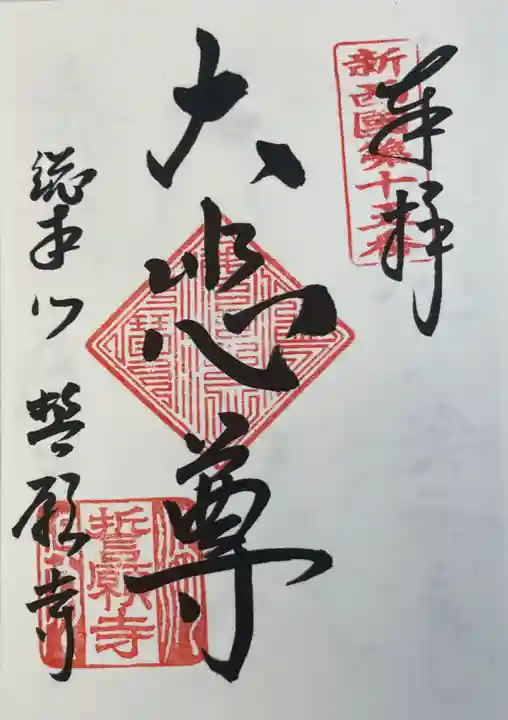 奉拝
新西國第十五番
大悲尊
総本山 誓願寺
誓願寺